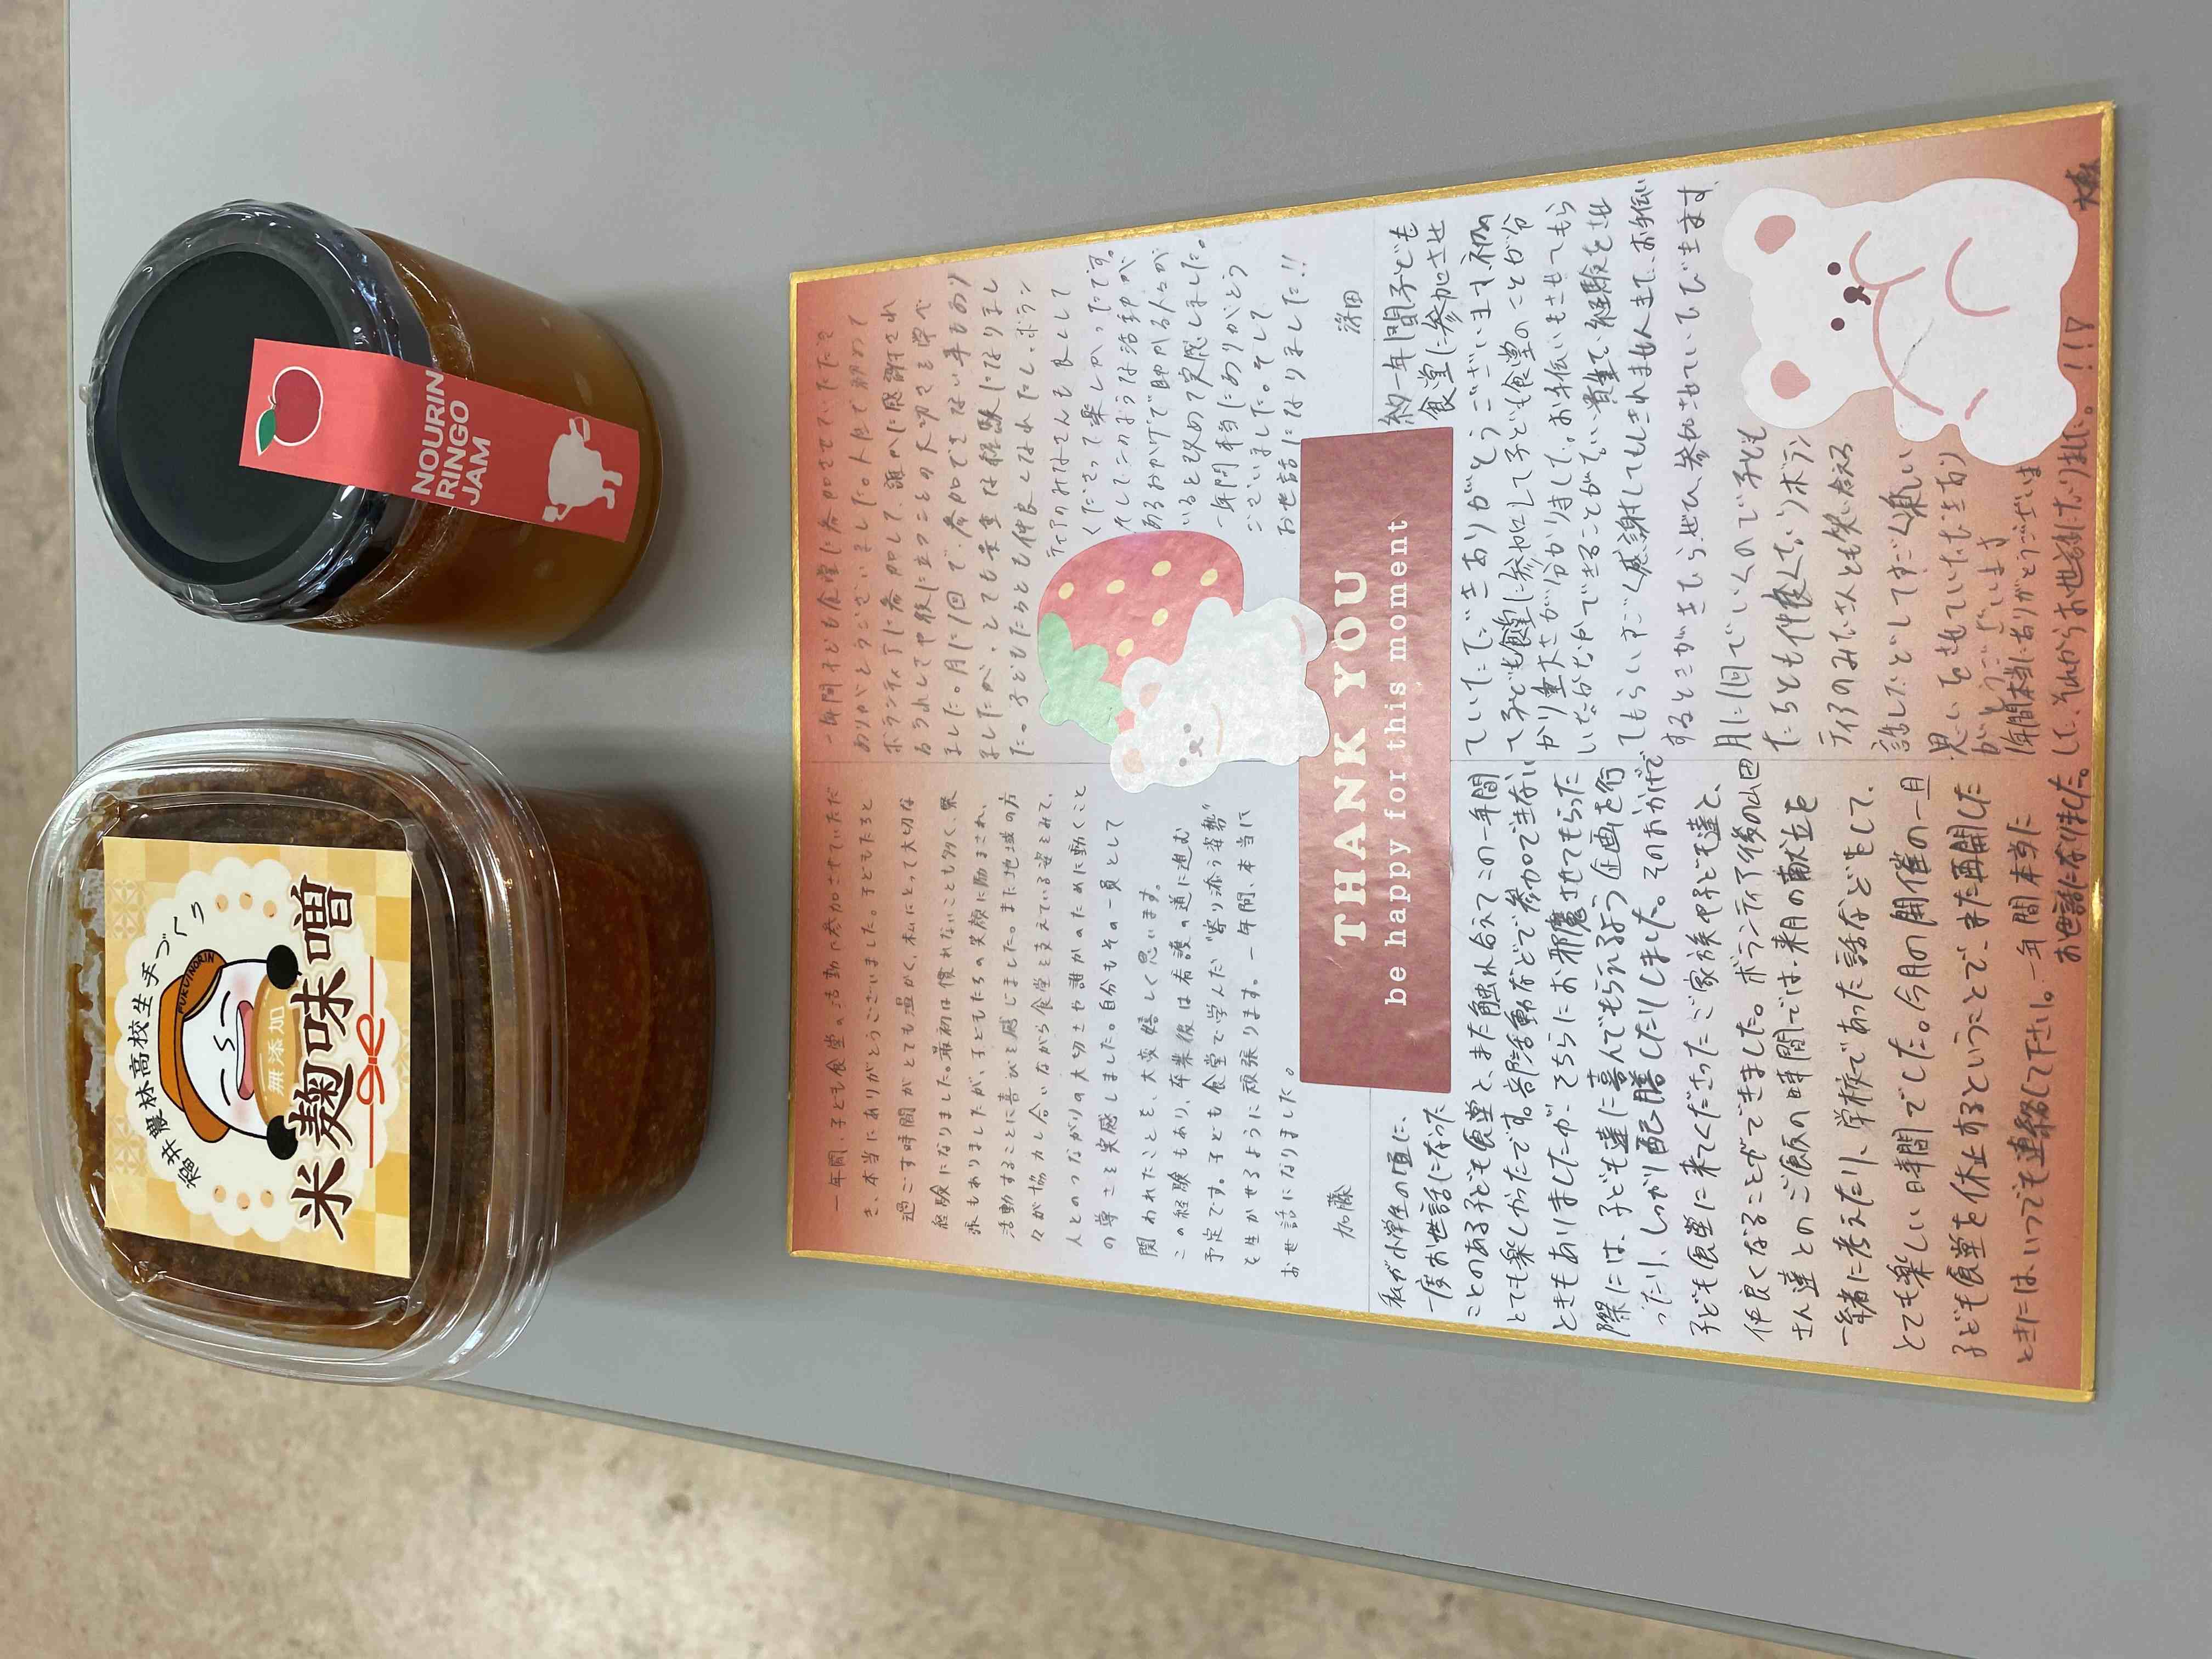 福井農林高校生手づくり
FUKUINORIN
無添加
米麹味噌
NOURIN
RINGO
JAM
一年間、子ども食堂の活動に参加させていただ
き、本当にありがとうございました。子どもたちと
過ごす時間がとても温かく、私にとって大切な
経験になりました。最初は慣れないことも多く、緊
張もありましたが、子どもたちの笑顔に励まされ、
活動することに喜びを感じました。また地域の方
々が協力し合いながら食堂を支えている姿をみて、
人とのつながりの大切さや誰かのために動くこと
の尊さを実感しました。自分もその一員として
関われたことを、大変嬉しく思います。
この経験もあり、卒業後は看護の道に進む
予定です。子ども食堂で学んだ"寄り添う姿勢"
を生かせるように頑張ります。一年間、本当に
お世話になりました。
加藤
一年間子ども食堂に参加させていただき
ありがとうございました。人生で初めて
ボランティアに参加して、誰かに感謝され
ました。月に1回で、参加できない事もあり
ましたが、とても貴重な経験になりまし
た。子どもたちとも仲良くなれたし、ボラン
ティアのみなさんも良くして
くださって楽しかったです。
そしてこのような活動が
あるおかげで助かる人々が
いると改めて実感しました。
一年間本当にありがとう
ございました。そして
お世話になりました!!
THANK YOU
be happy for this moment
私が小学生の頃に、
一度お世話になった
ことのある子ども食堂と、また触れ合えてこの一年間
とても楽しかったです。部活動などで参加できない
ときもありましたが、こちらにお邪魔させてもらった
際には、子ども達に喜んでもらえるよう企画を行
ったり、しっかり配膳したりしました。そのおかげで
子ども食堂に来てくださったご家族や子ども達と、
仲良くなることができました。ボランティア後の山田
さん達とのご飯の時間では、来月の献立を
一緒に考えたり、学校であった話などをして、
とても楽しい時間でした。今月の開催の一旦
子ども食堂を休止するということで、また再開した
ときには、いつでも連絡して下さい。一年間本当に
お世話になりました。
約一年間子ども
食堂に参加させ
ていただきありがとうございます。初め
て子ども食堂に参加して子ども食堂のことが分
かり重大さが分かりました。お手伝いもさせてもら
いなかなかできることがない貴重な経験をさせ
てもらいすごく感謝してもしきれません。また、お手伝い
するときがきたらぜひ、参加させていただきます。
月に1回でいくので子ども
たちとも仲良くなりボラン
ティアのみなさんとも笑い合える
話しなどしてすごく楽しい
思いをさせていただきあり
がとうございます
1年間本当にありがとうございま
した、それからお世話になりました。!!!